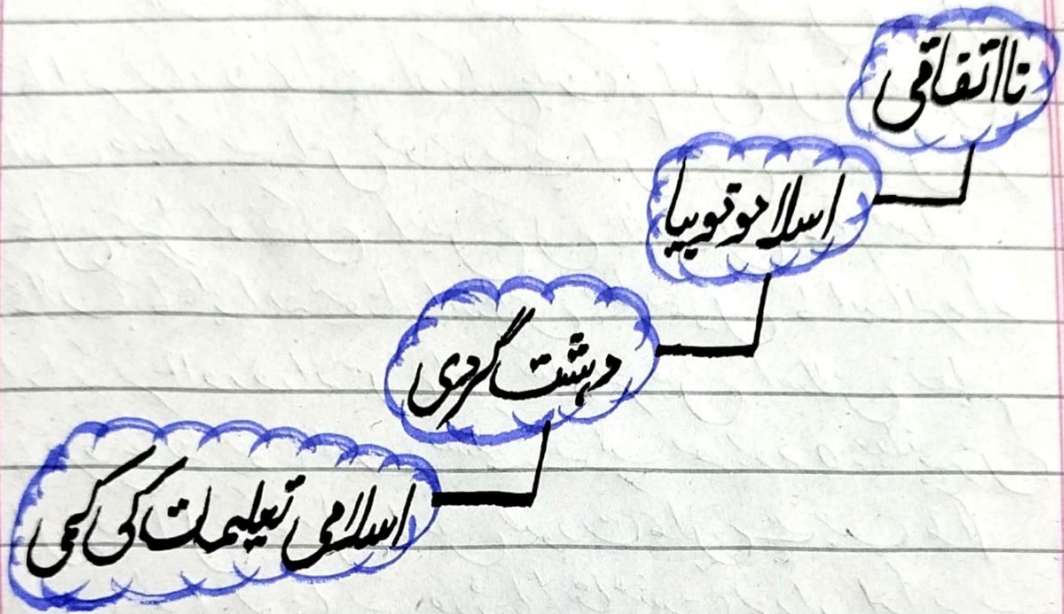 نااتفاقی
اسلاموفوبیا
دہشت گردی
اسلامی تعلیمات کی کمی